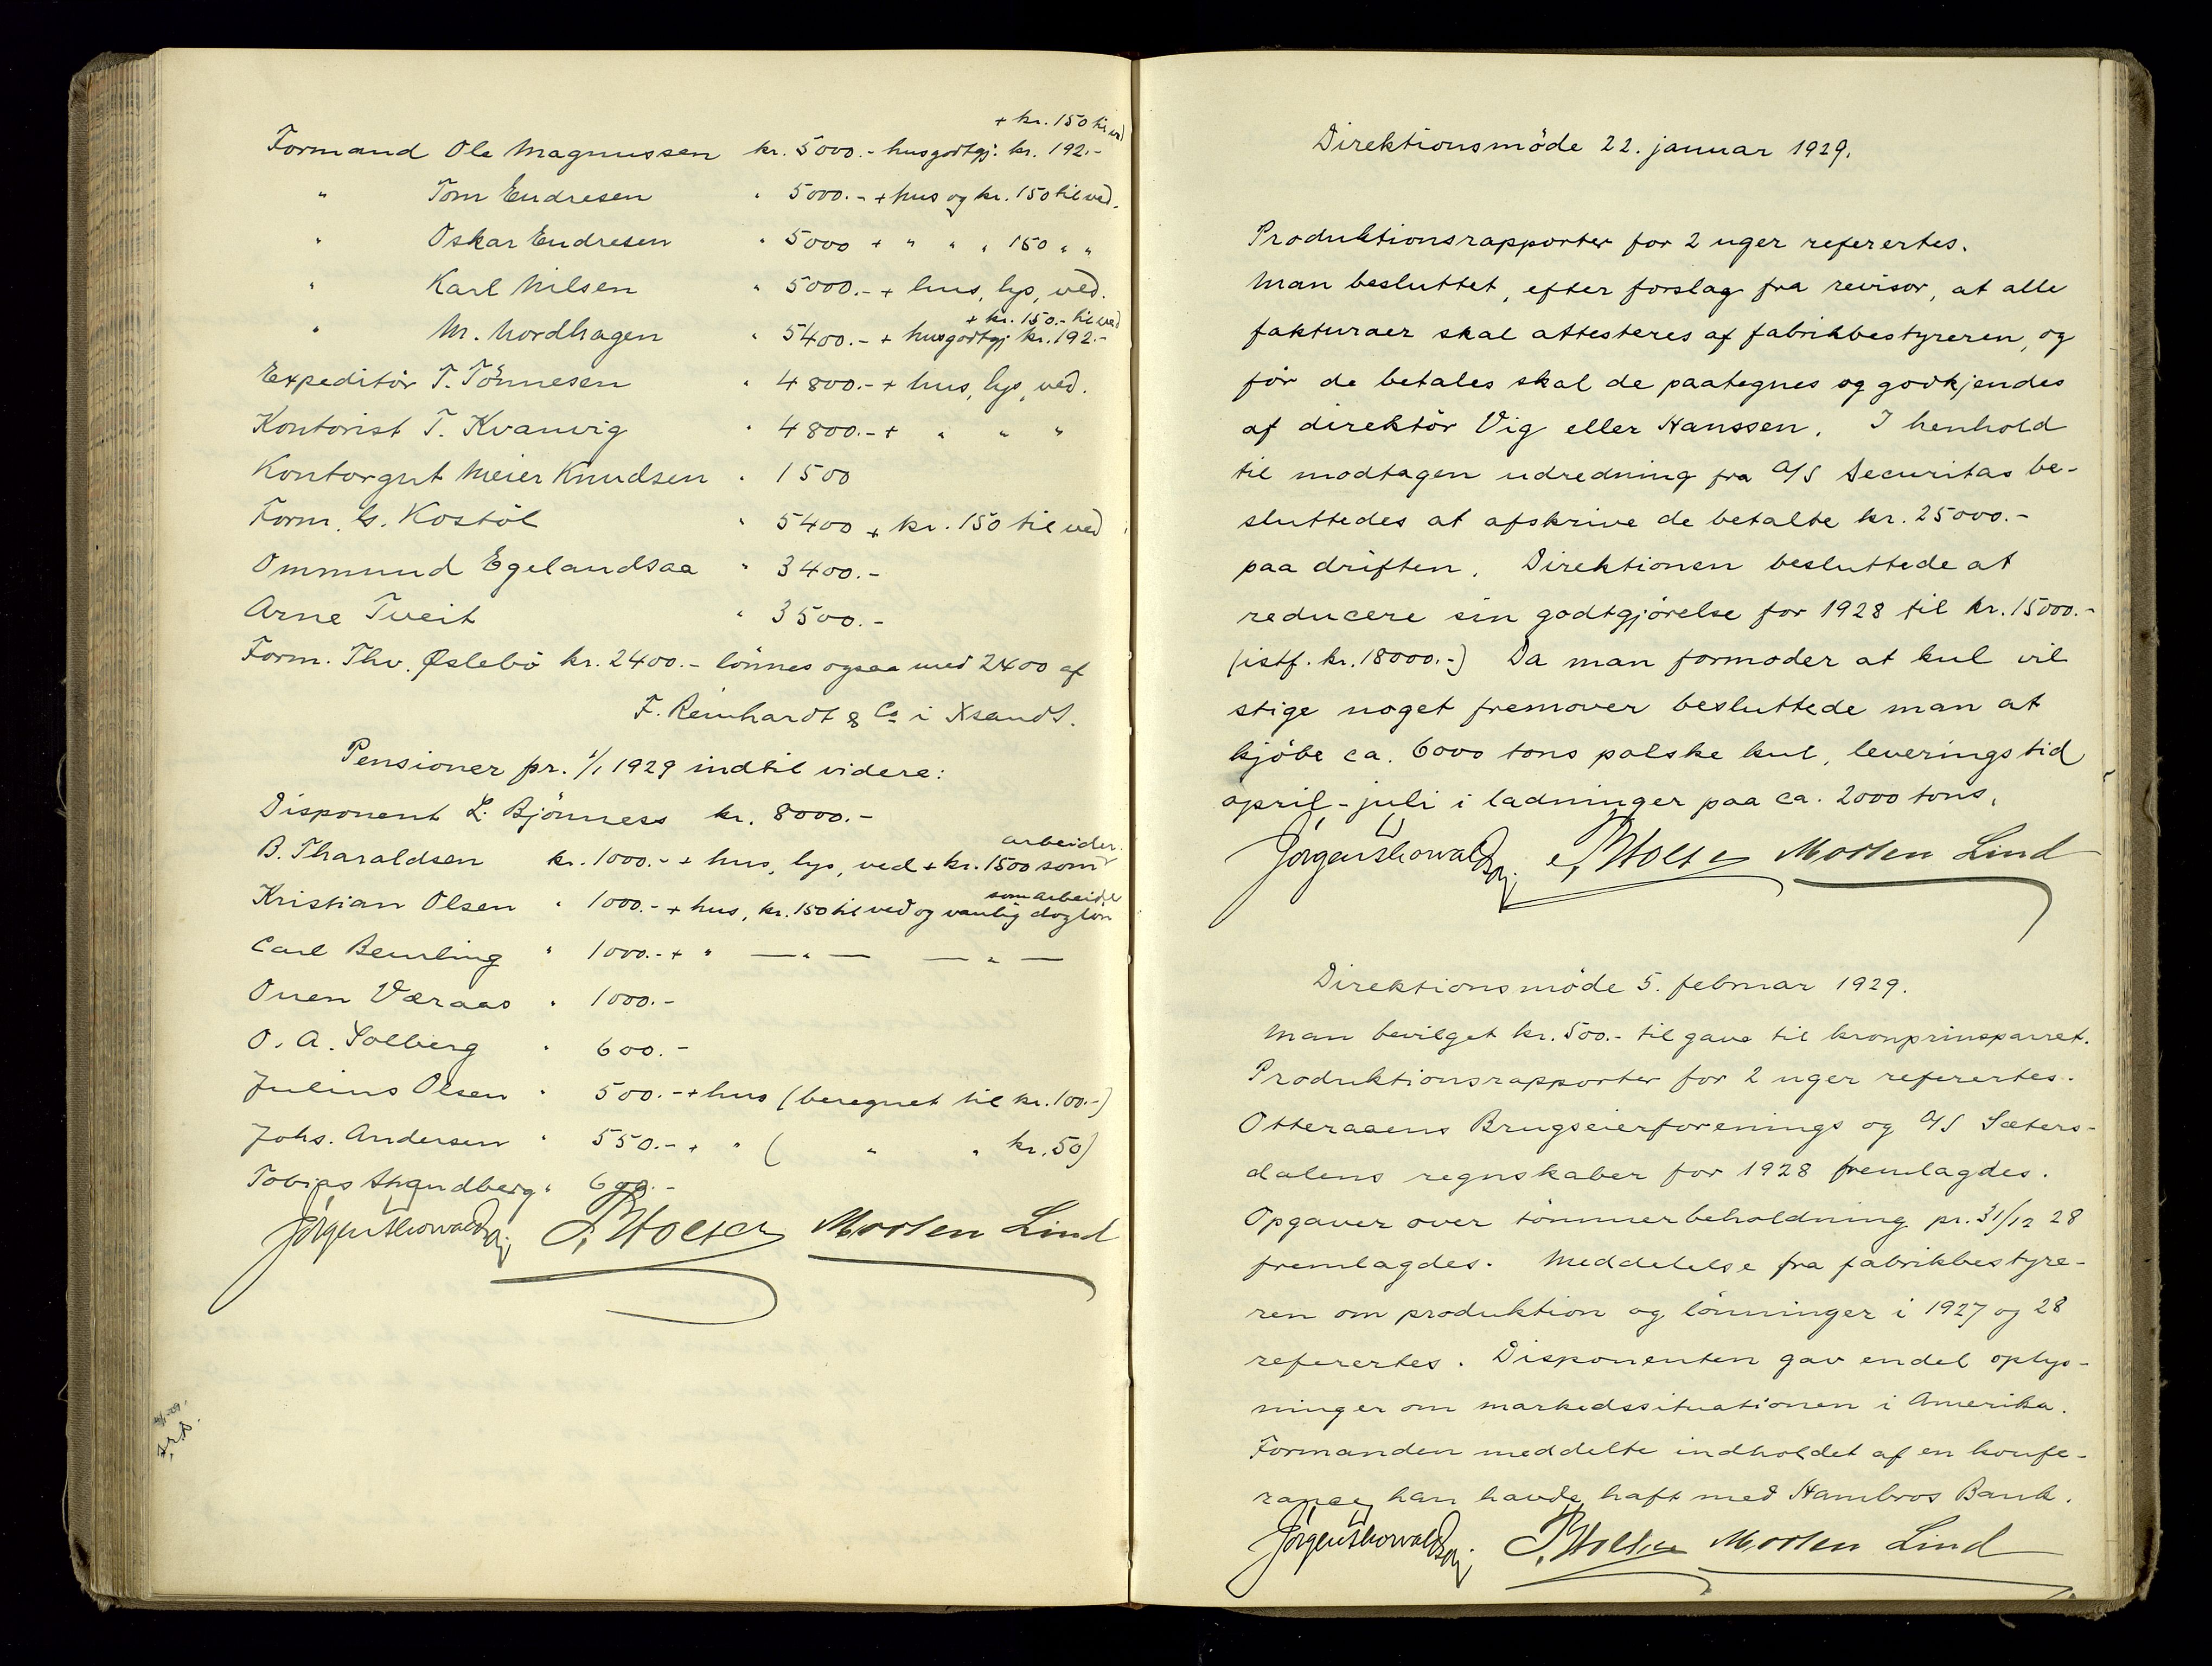 + kr. 150 til ved
Formand Ole Magnussen kr. 5000.- husgodtgj. kr. 192.-
" Tom Endresen " 5000.- + hus og kr. 150 til ved.
" Oskar Endresen " 5000 + " " " 150 " "
" Karl Nilsen " 5000.- + hus, lys, ved.
+ kr. 150.- til ved
" M. Nordhagen " 5400.- + husgodtgj kr. 192.-
Expeditör T. Tönnesen " 4800.- + hus, lys, ved.
Kontorist T. Kvanvig " 4800.- + " " "
Kontorgut Meier Knudsen " 1500
Form. G. Kostöl " 5400 + kr. 150 til ved
Ommund Egelandsaa " 3400.-
Arne Tveit " 3500.-
Form. Thv. Øslebö kr. 2400.- lönnes ogsaa med 2400 af
F. Reinhardt & Co i Xsandt.
Pensioner pr. 1/1 1929 indtil videre:
Disponent L. Bjönness kr. 8000.-
arbeider
B. Tharaldsen kr. 1000.- + hus, lys, ved + kr. 1500 som
som arbeider
Kristian Olsen " 1000.- + hus, kr. 150 til ved og vanlig daglön
Carl Beurling " 1000.- + " — " — — " —
Ouen Væraas " 1000.-
O. A. Solberg " 600.-
Julius Olsen " 500.- + hus (beregnet til kr. 100.-)
Johs. Andersen " 550.- + " ( " " kr. 50)
Tobias Strandberg " 600.-
Jörgen Thorwaldson P. Holter Morten Lind
Direktionsmöde 22. januar 1929.
Produktionsrapporter for 2 uger referertes.
Man besluttet, efter forslag fra revisor, at alle
fakturaer skal attesteres af fabrikbestyreren, og
för de betales skal de paategnes og godkjendes
af direktör Vig eller Hanssen. I henhold
til modtagen udredning fra A/S Securitas be-
sluttedes at afskrive de betalte kr. 25000.-
paa driften. Direktionen besluttede at
reducere sin godtgjörelse for 1928 til kr. 15000.-
(istf. kr. 18000.-) Da man formoder at kul vil
stige noget fremover besluttede man at
kjöbe ca. 6000 tons polske kul, leveringstid
april - juli i ladninger paa ca. 2000 tons.
Jörgen Thorwaldson P. Holter Morten Lind
Direktionsmöde 5. februar 1929.
Man bevilget kr. 500.- til gave til kronprinsparret.
Produktionsrapporter for 2 uger referertes.
Otteraaens Brugseierforenings og A/S Sæters-
dalens regnskaber for 1928 fremlagdes.
Opgaver over tömmerbeholdning pr. 31/12 28
fremlagdes. Meddelelse fra fabrikbestyre-
ren om produktion og lönninger i 1927 og 28
referertes. Disponenten gav endel oplys-
ninger om markedssituationen i Amerika.
Formanden meddelte indholdet af en konfe-
rance han havde haft med Hambros Bank.
Jörgen Thorwaldson P. Holter Morten Lind